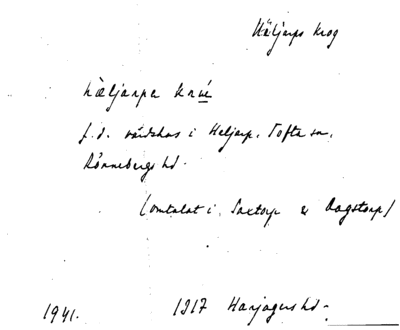 Häljarps krog
hæljarpa krú
f.d. värdshus i Heljarp, Tofta sn,
Rönnebergs hd.
(omtalat i Saxtorp & Dagstorp)
1941. 1317 Harjagers hd.